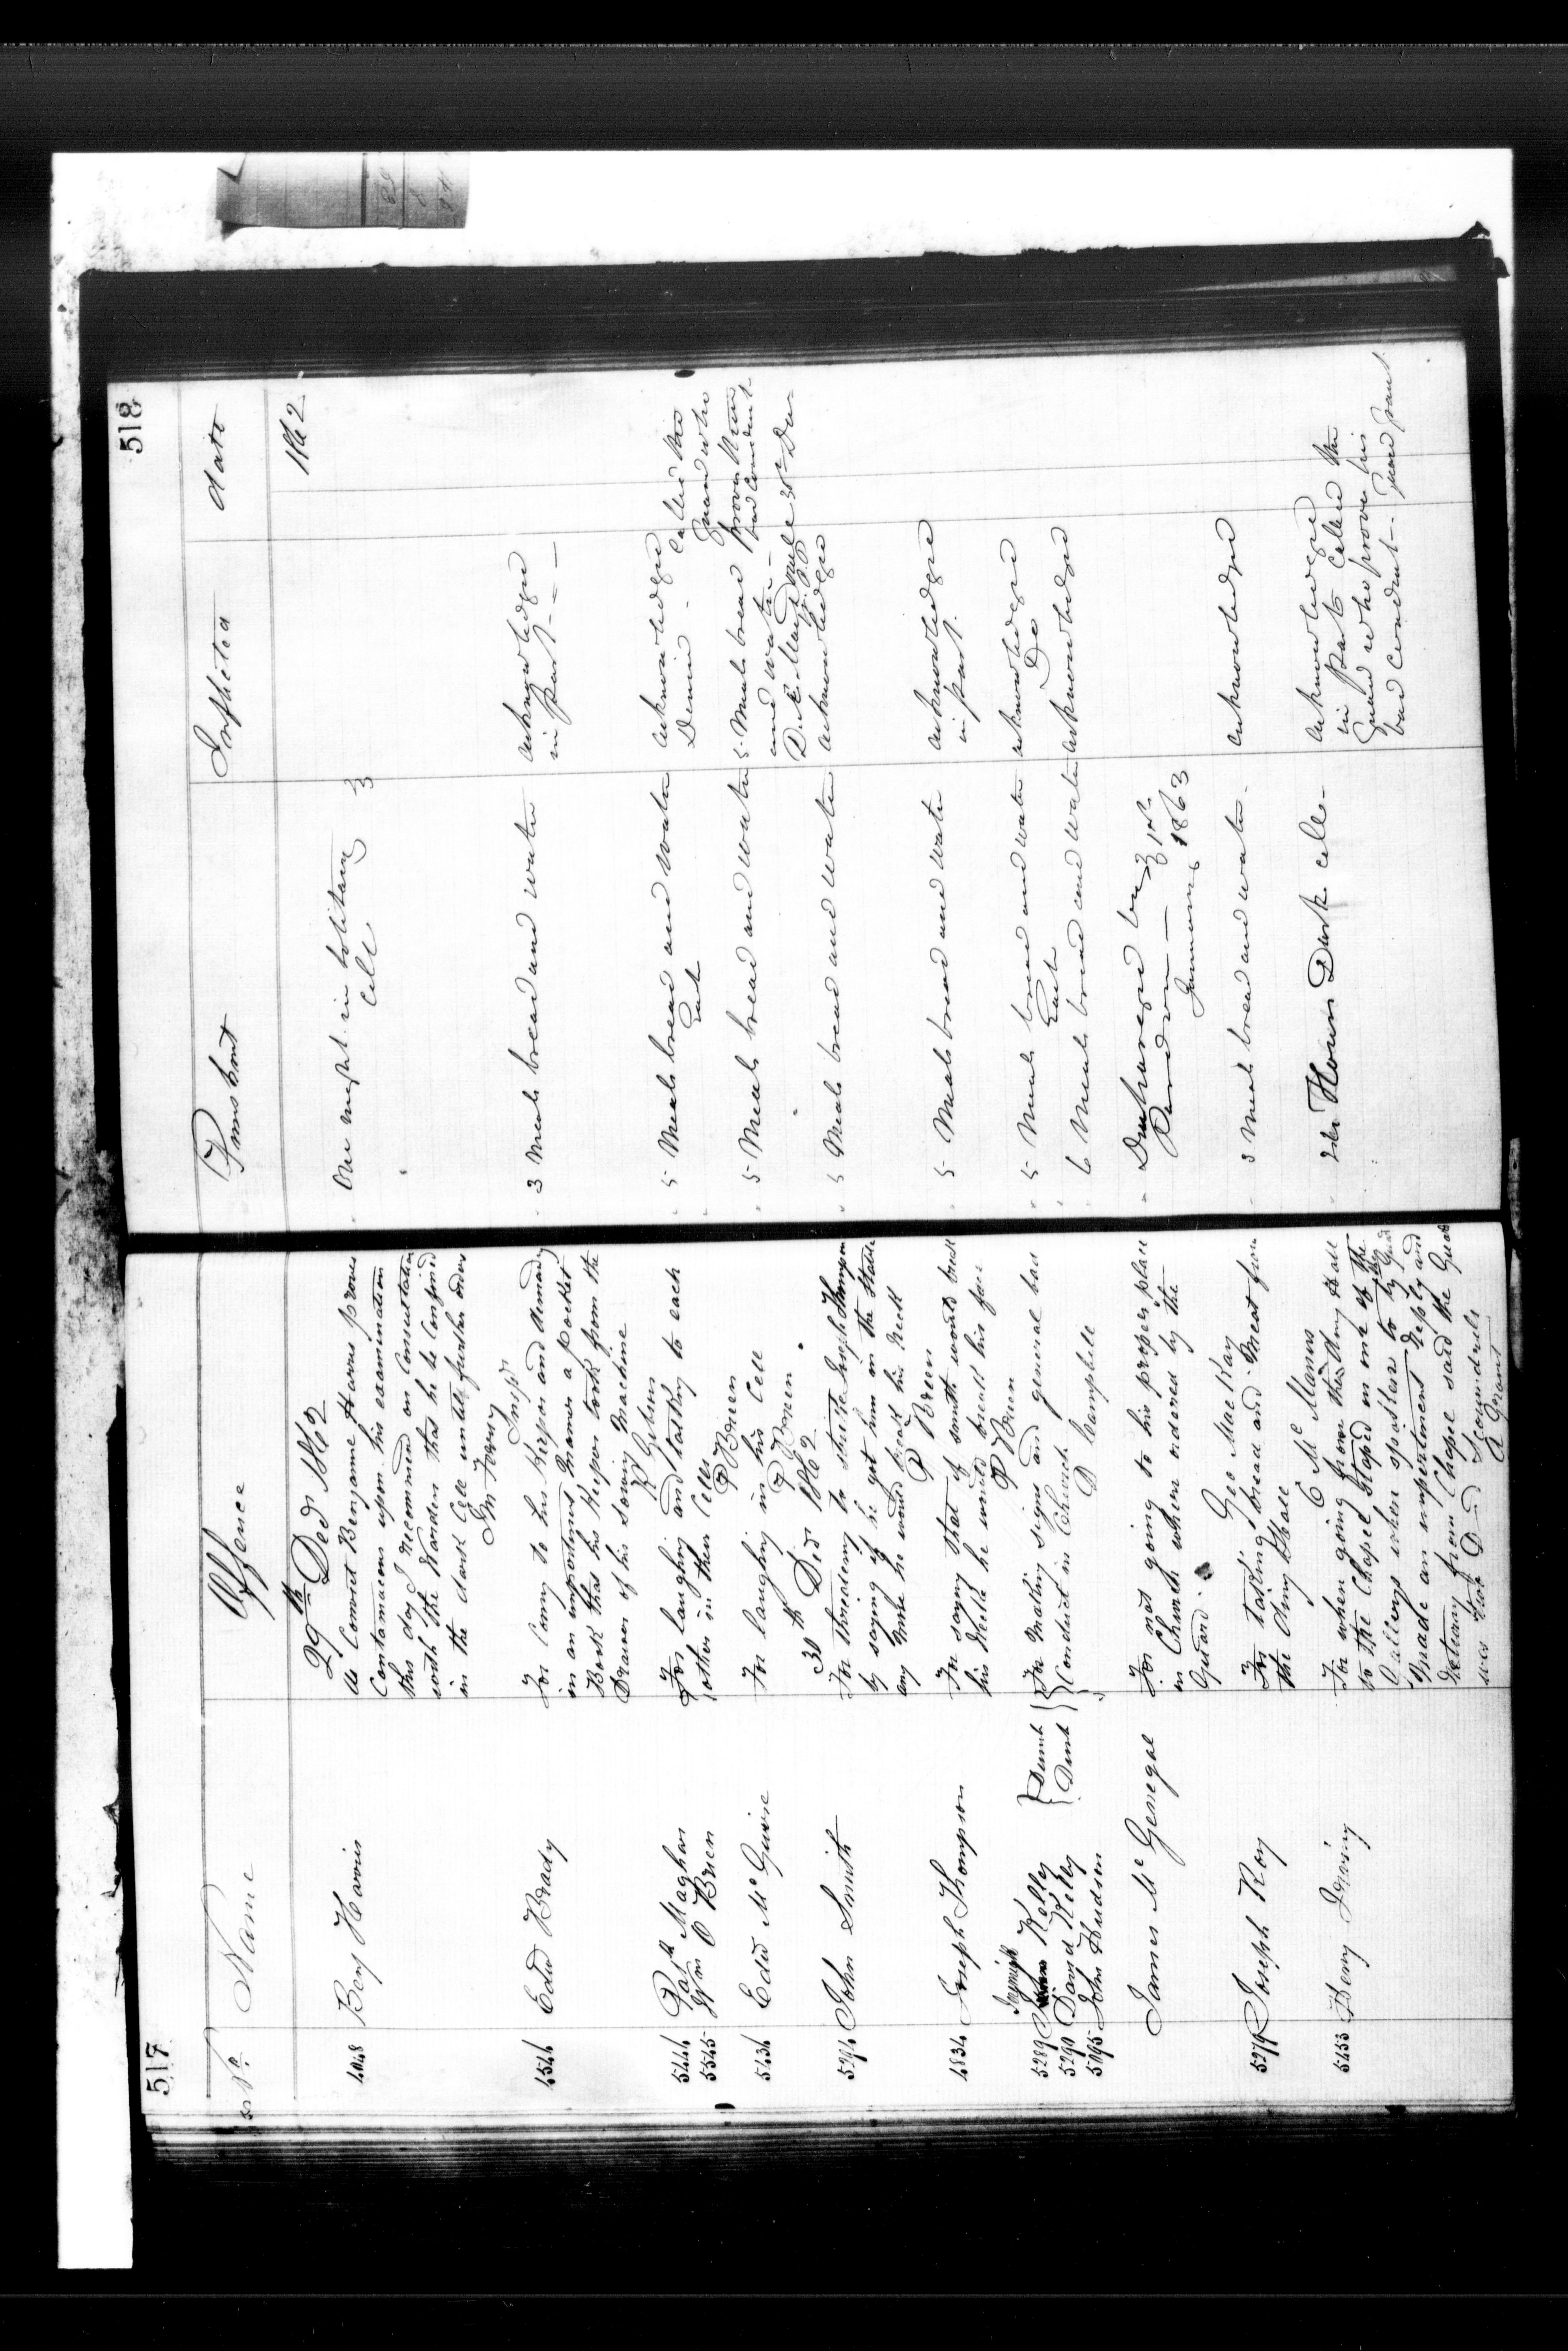 517
No.
Name
Offence
29th Decr 1862
4048 Benj Harris
As Convict Benjamine Harris proves
Contamacous upon his examination
this day I recommend on Consultation
with the Warden that he be Confined
in the dark Cell until further orders
Insp.
Edwd Brady
For Coming to his Keeper and demandg
in an impertinent manner a pocket
Book that his Keeper took from the
Drawer of his Sowing Machine
5444 Patk Maghan
5545 Wm O Brien
For laughing and talking to each
other in their Cells
P Brien
5434 Edwd Mc Guire
For laughing in his Cell
P Brien
30th Decr 1862
5294 John Smith
For threatening to strike Joseph Thompson
by saying if he got him in the Stable
any more he would break his Neck
P Brien
4834 Joseph Thompson
For saying that if Smith would break
his Neck he would break his face
P Brien
5289 Kelly
5290 David Kelly
5195 John Hudson
For Making signs and general bad
Conduct in Church
D Campbell
James Mc Genegal
For not going to his proper place
in Church when ordered by the
Guard.
Geo MacKay
5279 Joseph Roy
For taking bread and Meat from
the dining Hall
C Mc Manus
5453 Henry Irving
For when going from the ding Hall
to the Chapel Stoped in one of the
Gallerys when spoken to by Guard
Made an impertinent reply and
returning from Chapel said the Guard
was Scoundrels
A Grant
518
Punishment
Inspector
date
1862
One night in Solitary
Cell
3 Meals bread and water
acknowledged
in part
5 Meals bread and water
acknowledged
Denied - Called the
Guard who
proves their
bad conduct
5 Meals bread and water
5 Meals bread
and water
5 Meals bread and water
acknowledged
5 Meals bread and water
acknowledged
in part.
5 Meals bread and water
Each
acknowledged
Do
6 Meals bread and water
acknowledged
Discharged by
Pardon — 1st
January 1863
3 Meals bread and water.
acknowledged
24 Hours Dark cell.
acknowledged
in part Called the
Guard who proves his
bad conduct - Guard Grant